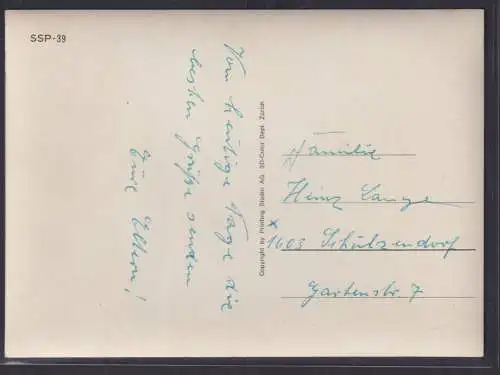 SSP-39
Vom heutigen Tage die
besten Grüße senden
Eure Eltern!
Copyright by Printing Studer AG. 3D-Color Dept. Zürich
Familie
Heinz Lange
* 1603 Schulzendorf
Gartenstr. 7